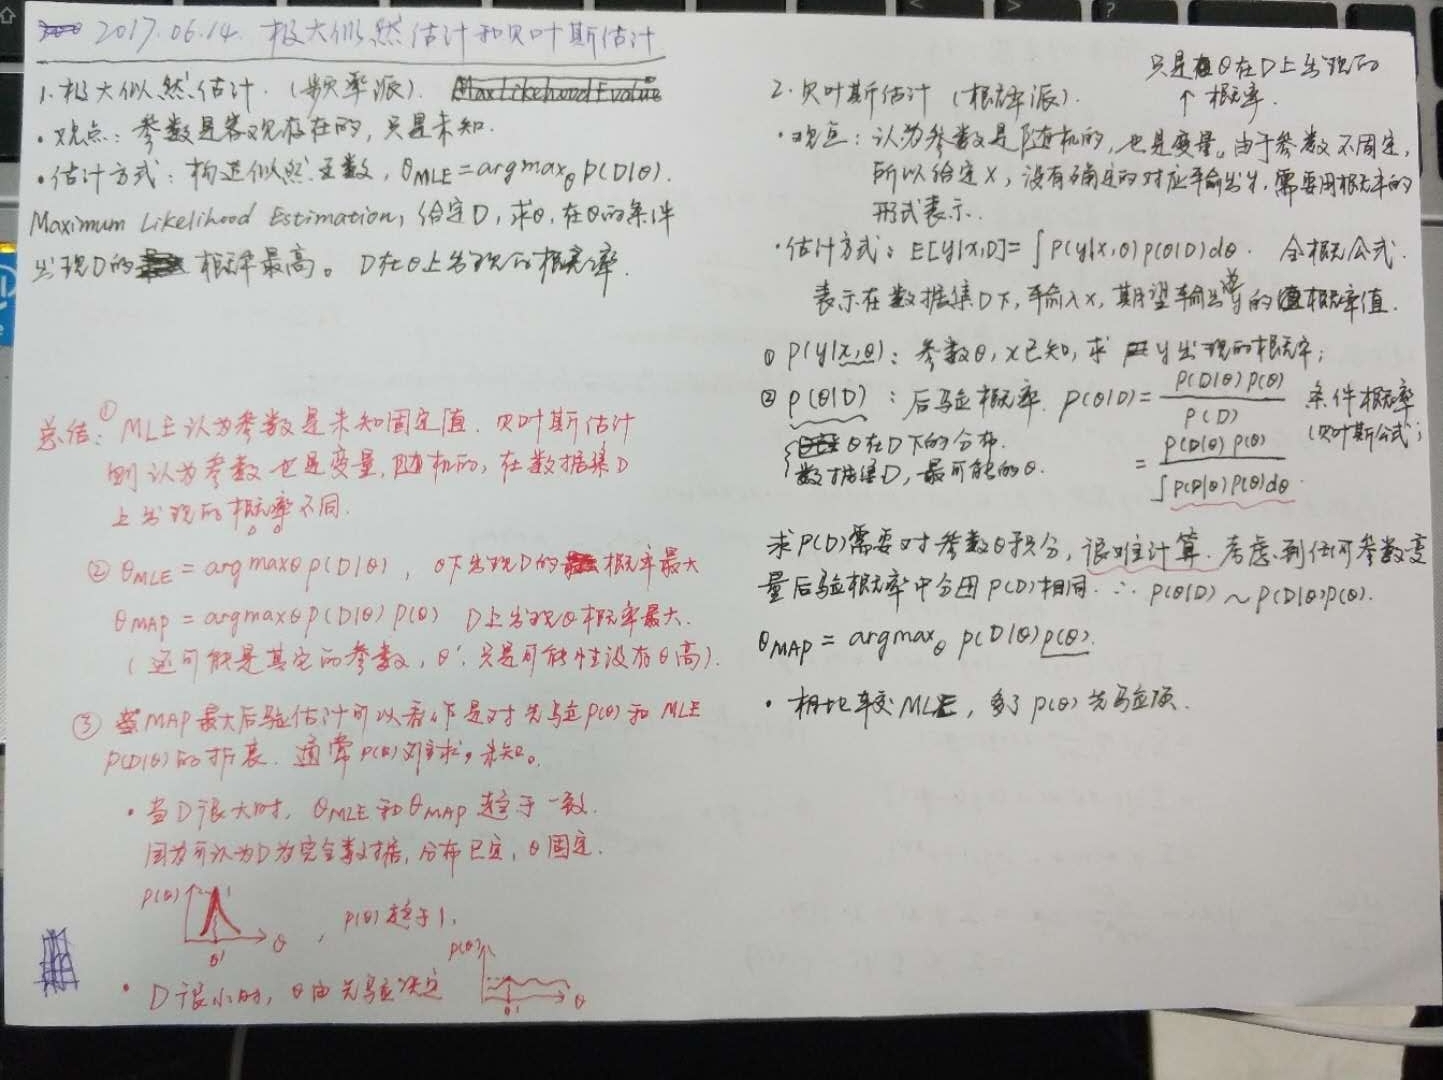 2017.06.14. 极大似然估计和贝叶斯估计
1.极大似然估计.(频率派).
·观点:参数是客观存在的,只是未知.
·估计方式:构造似然函数,θMLE=argmaxθ P(D|θ).
Maximum Likelihood Estimation,给定D,求θ,在θ的条件
出现D的概率最高。D在θ上出现的概率.
总结:① MLE认为参数是未知固定值.贝叶斯估计
则认为参数也是变量,随机的,在数据集D
上出现的概率不同.
② θMLE = argmaxθ P(D|θ), θ下出现D的概率最大
θMAP = argmaxθ P(D|θ) P(θ) D上出现θ概率最大.
(还可能是其它的参数,θ',只是可能性没有θ高).
③ MAP最大后验估计可以看作是对先验P(θ)和MLE
P(D|θ)的折衷.通常P(θ)难求,未知。
·当D很大时,θMLE和θMAP趋于一致.
因为可认为D为完全数据,分布已定,θ固定.
P(θ) 1
θ' θ , P(θ)趋于1,
·D很小时,θ由先验决定
P(θ)
θ' θ
只是θ在D上出现的
↑概率.
2.贝叶斯估计(概率派).
·观点:认为参数是随机的,也是变量。由于参数不固定,
所以给定x,没有确定的对应输出y,需要用概率的
形式表示.
·估计方式:E[y|x,D]=∫P(y|x,θ)p(θ|D)dθ. 全概公式.
表示在数据集D下,输入x,期望输出y的概率值.
① P(y|x,θ):参数θ,x已知,求y出现的概率;
② P(θ|D):后验概率. P(θ|D)= P(D|θ)P(θ) / P(D) 条件概率
(贝叶斯公式);
θ在D下的分布.
数据集D,最可能的θ.
= P(D|θ) P(θ) / ∫P(D|θ)P(θ)dθ
求P(D)需要对参数θ积分,很难计算.考虑到任何参数变
量后验概率中分母P(D)相同.∴ P(θ|D) ~ P(D|θ)P(θ).
θMAP = argmaxθ P(D|θ)P(θ).
·相比较MLE,多了P(θ)先验项.